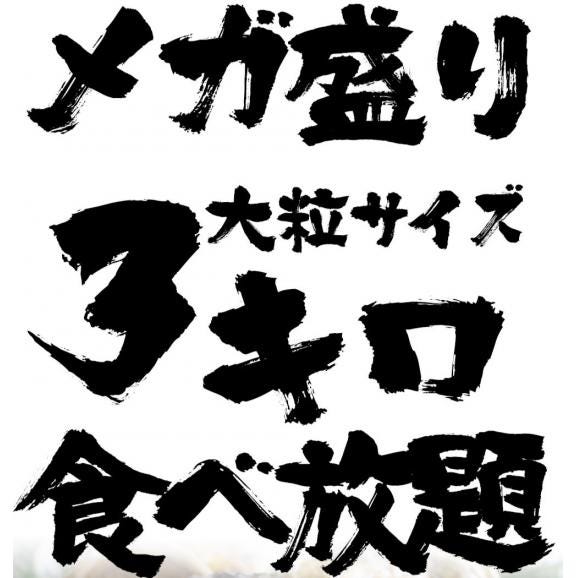 メガ盛り
大粒サイズ
3キロ
食べ放題